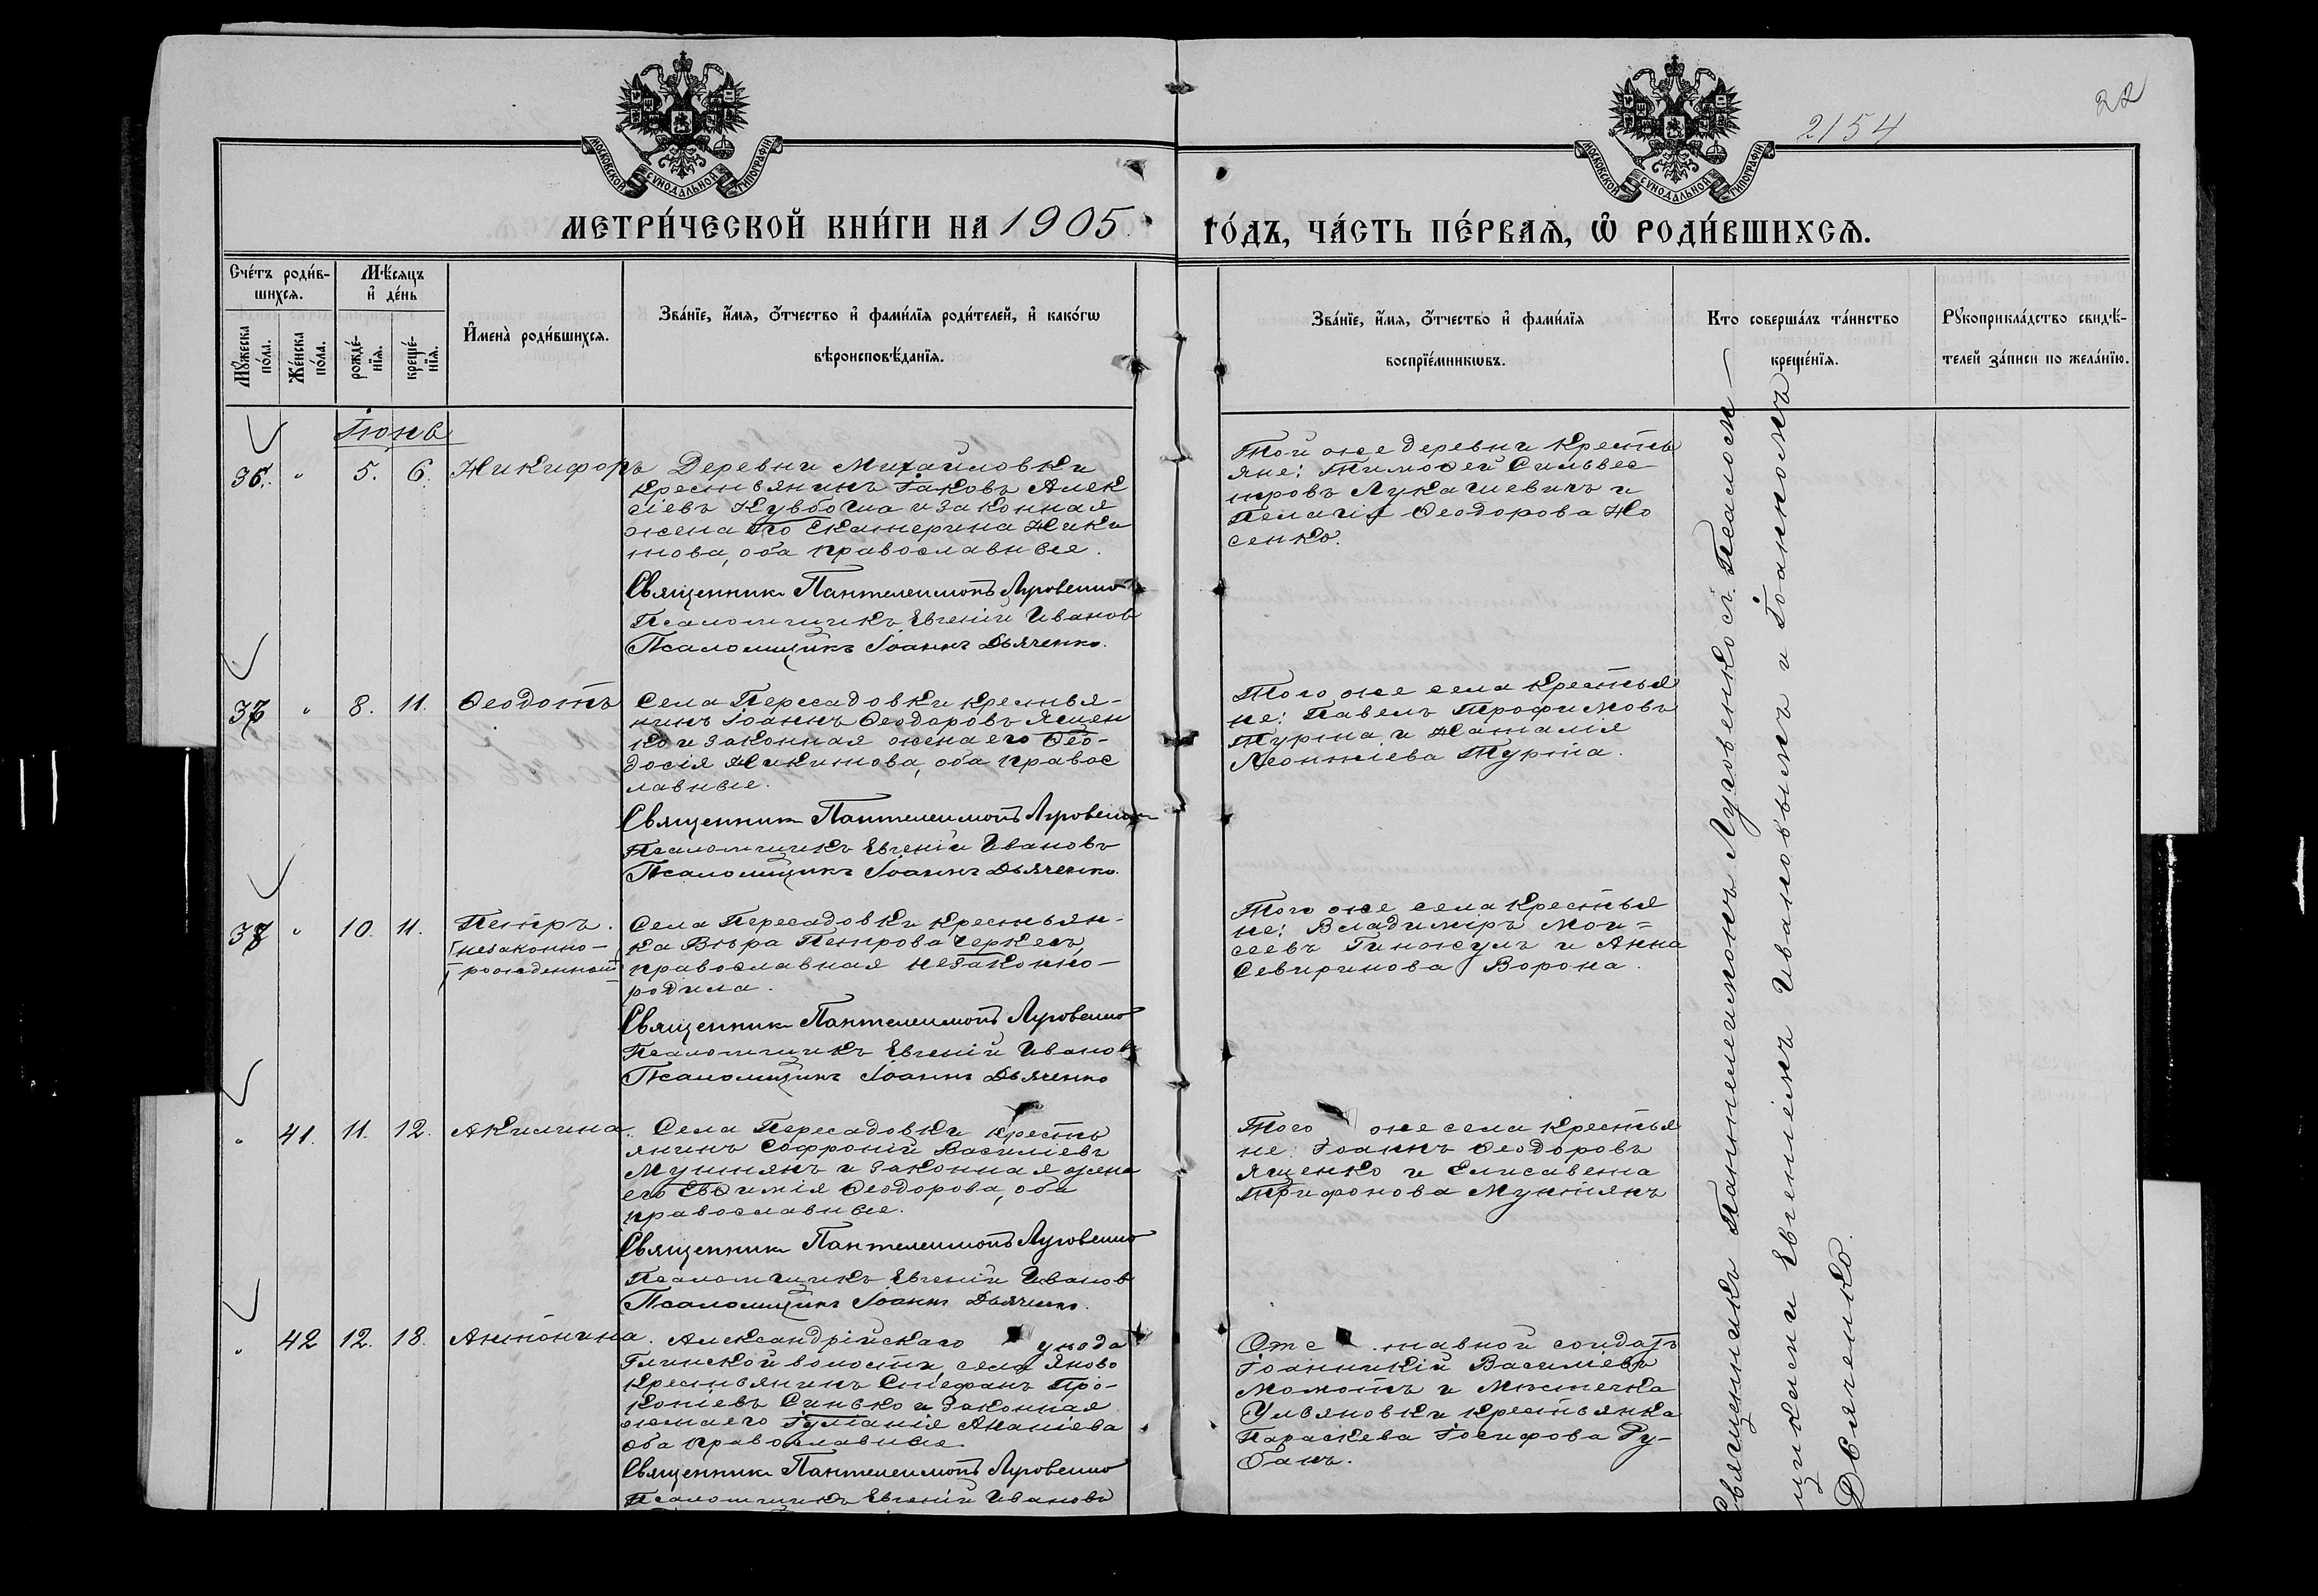 22
2154
МОСКОВСКОЙ СѴНОДАЛЬНОЙ ТИПОГРАФІИ
МОСКОВСКОЙ СѴНОДАЛЬНОЙ ТИПОГРАФІИ
МЕТРИ́ЧЕСКОЙ КНИ́ГИ НА 1905.
ГО́ДЪ, ЧА́СТЬ ПЕ́РВАѦ, Ѽ РОДИ́ВШИХСѦ.
Сче́тъ роди́в-
шихсѧ.
Мꙋжеска по́ла.
Же́нска по́ла.
Мѣ́сяцъ
и҆ де́нь
рожде́-
нїѧ.
креще́-
нїѧ.
И҆мена̀ роди́вшихсѧ.
Зва́нїе, и҆́мѧ, ѻ҆́тчество и҆ фами́лїѧ роди́телей, и҆ како́гѡ
вѣроисповѣ́данїѧ.
Зва́нїе, и҆́мѧ, ѻ҆́тчество и҆ фами́лїѧ
воспрїе́мникѡвъ.
Кто соверша́лъ та́инство
креще́нїѧ.
Рꙋкоприкла́дство свидѣ́-
телей за́писи по жела́нїю.
Іюнь
36. " 5. 6. Никифоръ
Деревни Михайловки
крестьянинъ Іаковъ Алек
сіевъ и законная
жена его Екатерина Ники
това, оба православные.
Священникъ Пантелеимонъ Луговенко
Псаломщикъ Евгеній Иванов
Псаломщикъ Іоаннъ Дьяченко.
Той же деревни кресть
яне: Тимоѳей Сильвес
тровъ Лукашевичъ и
Пелагія Ѳеодорова Но
сенко.
37 " 8. 11. Ѳеодотъ
Села Пересадовки крестья-
нинъ Іоаннъ Ѳеодоровъ Ящен
ко и законная жена его Ѳео-
досія Никитова, оба правос
лавные.
Священникъ Пантелеимонъ Луговенко
Псаломщикъ Евгеній Ивановъ
Псаломщикъ Іоаннъ Дьяченко.
Того же села крестья
не: Павелъ Трофимовъ
Турта и Наталія
Леонтіева Турта.
38 " 10. 11. Петръ.
незаконно-
рожденный
Села Пересадовки крестьян-
ка Вѣра Петрова Черкесъ,
православная незаконно-
родила.
Священникъ Пантелеимонъ Луговенко
Псаломщикъ Евгеній Иванов
Псаломщикъ Іоаннъ Дьяченко
Того же села крестья
не: Владиміръ Мои=
сеевъ Гинжулъ и Анна
Севиринова Ворона.
" 41. 11. 12. Акилина.
Села Пересадовки кресть
янинъ Софроній Василіевъ
Мунтянъ и законная жена
его Евѳимія Ѳеодорова, оба
православные.
Священникъ Пантелеимонъ Луговенко
Псаломщикъ Евгеній Иванов
Псаломщикъ Іоаннъ Дьяченко.
Того же села крестья
не: Іоаннъ Ѳеодоровъ
Ященко и Елисавета
Трифонова Мунтянъ
" 42 12. 18. Антонина.
Александрійскаго уѣзда
Глинской волости, села Яново
крестьянинъ Стефанъ Про-
копіевъ Синько и законная
жена его Іуліанія Ананіева
оба православные
Священникъ Пантелеимонъ Луговенко
Псаломщикъ Евгеній Ивановъ
Отс тавной солдатъ
Іоанникій Василіевъ
Момотъ и Мѣстечка
Ульяновки крестьянка
Параскева Іосифова Ру-
банъ.
Священникъ Пантелеимонъ Луговенко съ Псалом-
щиками Евгеніемъ Ивановымъ и Іоанномъ
Дьяченко.